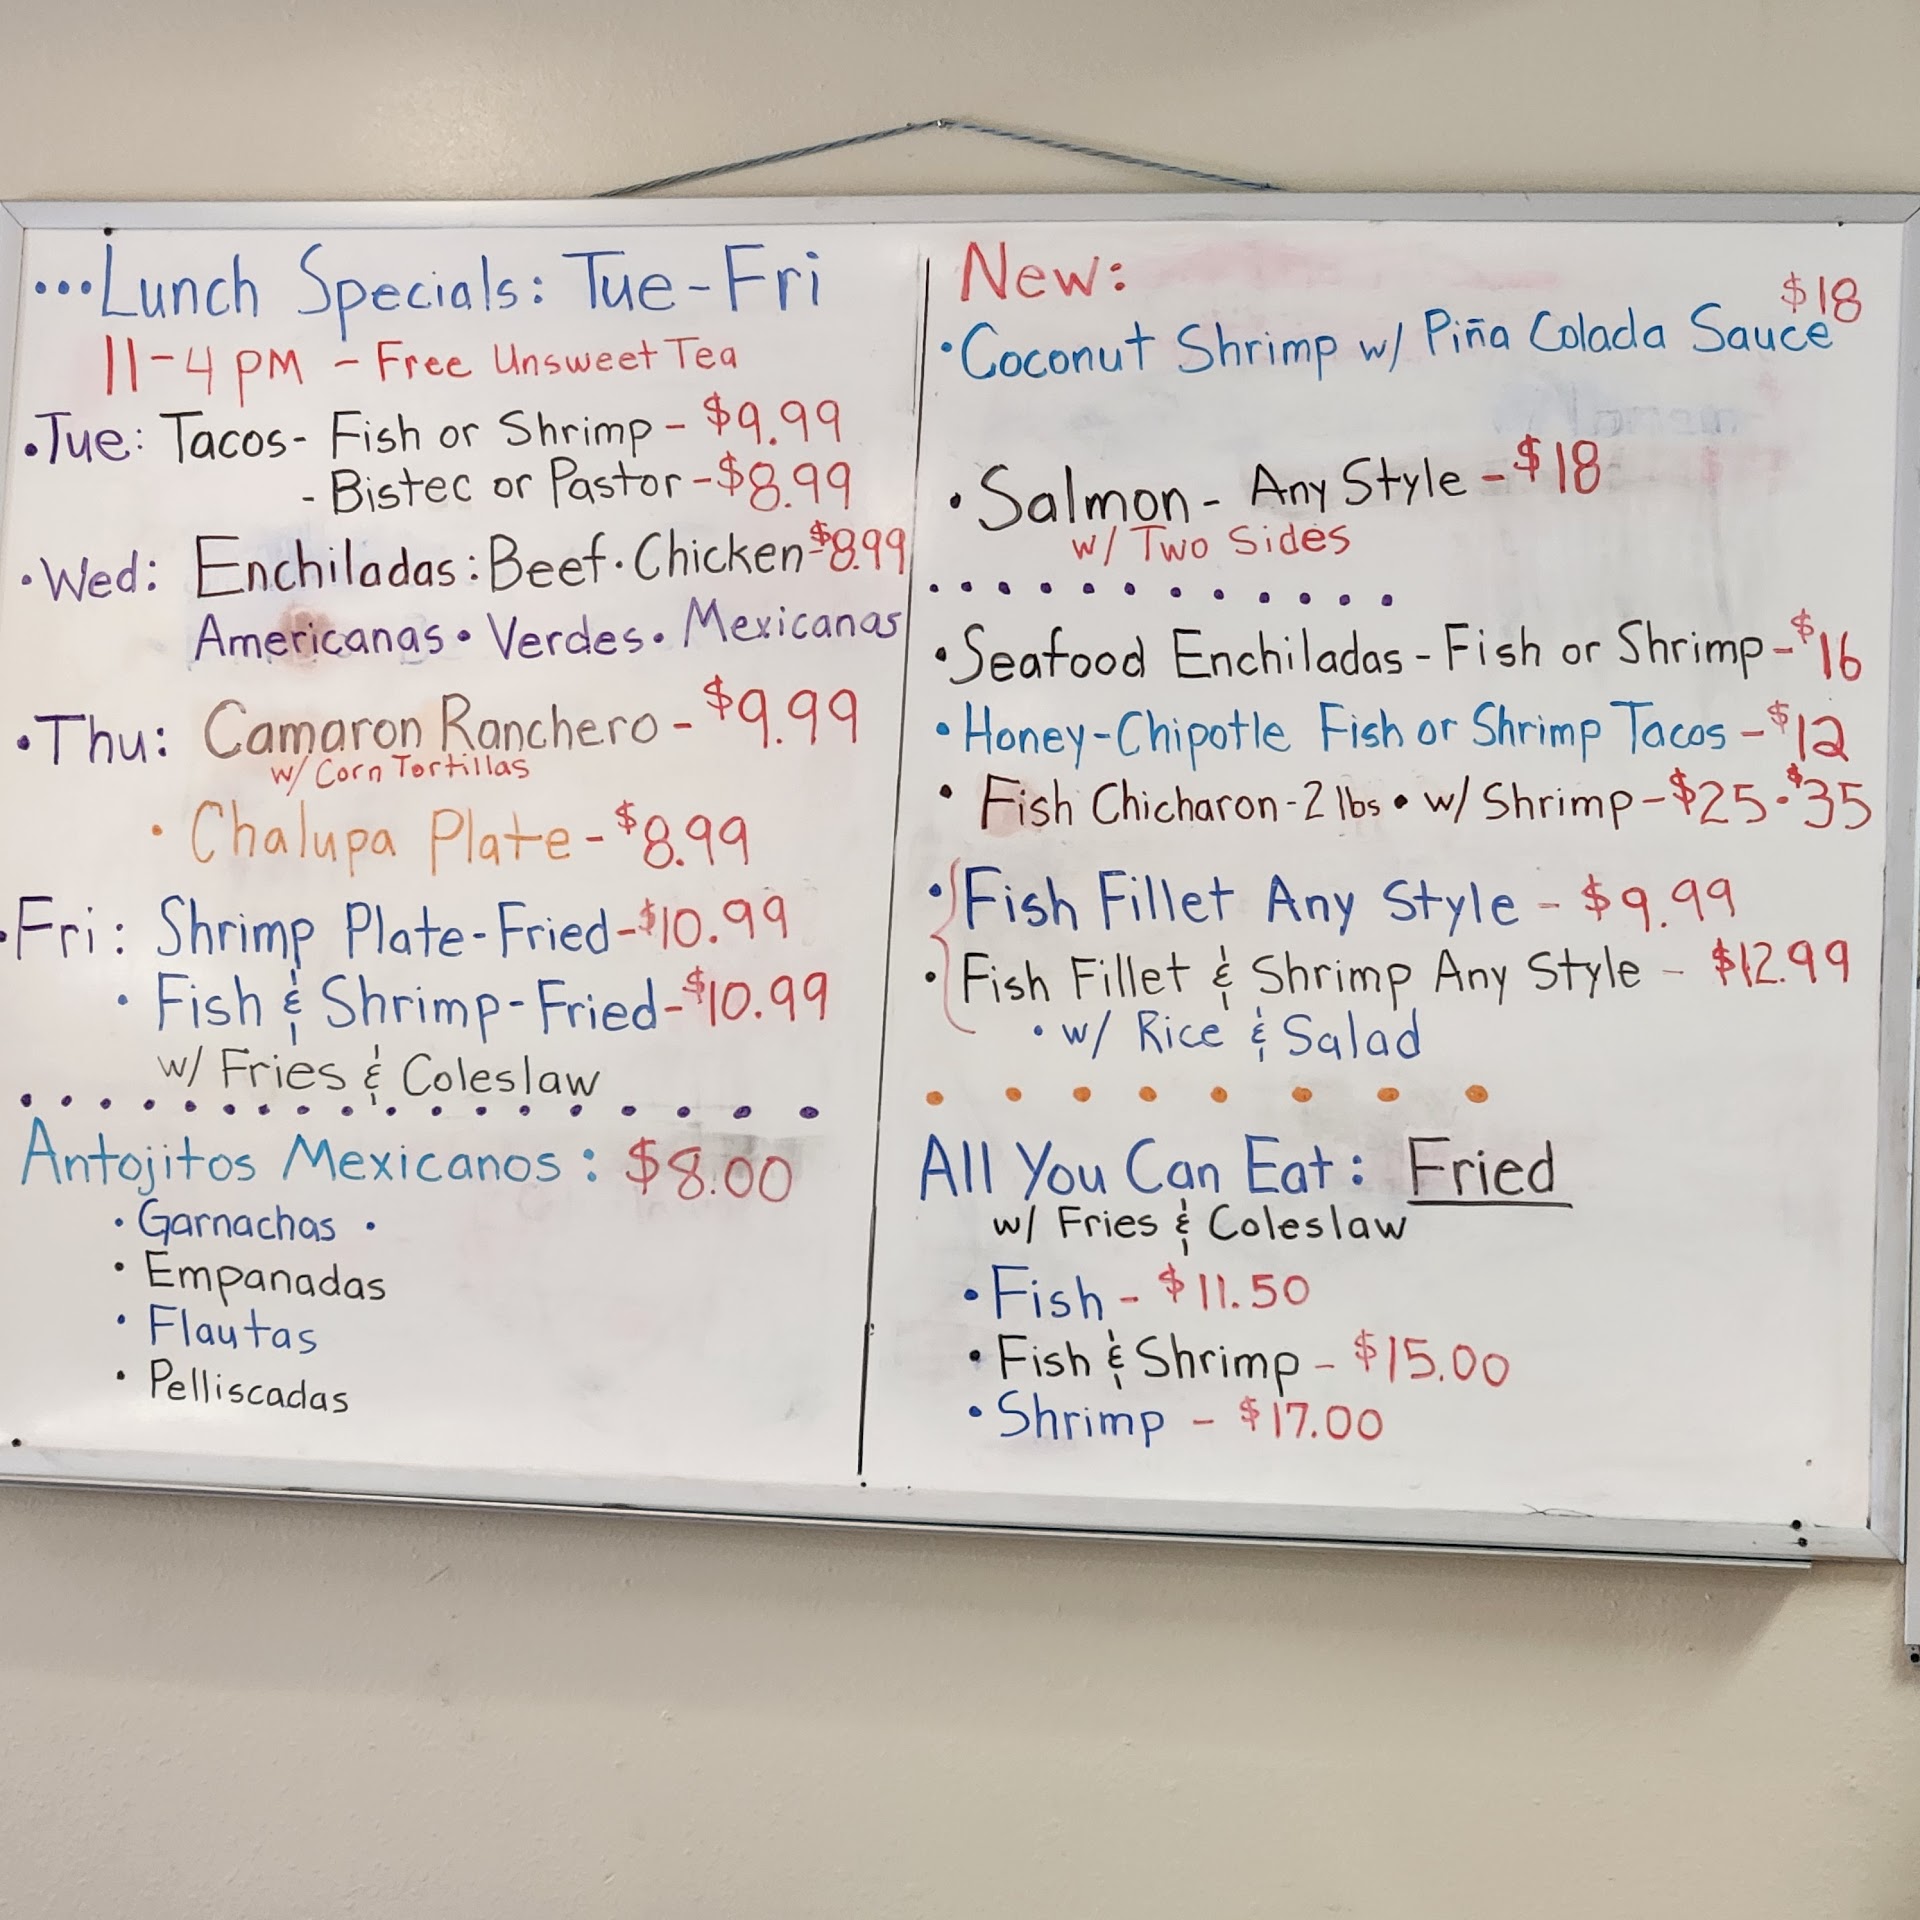 ...Lunch Specials: Tue-Fri
11-4 PM - Free Unsweet Tea
• Tue: Tacos- Fish or Shrimp - $9.99
- Bistec or Pastor - $8.99
• Wed: Enchiladas: Beef • Chicken - $8.99
Americanas • Verdes • Mexicanas
• Thu: Camaron Ranchero - $9.99
w/ Corn Tortillas
• Chalupa Plate - $8.99
• Fri: Shrimp Plate-Fried - $10.99
• Fish & Shrimp-Fried - $10.99
w/ Fries & Coleslaw
Antojitos Mexicanos: $8.00
• Garnachas •
• Empanadas
• Flautas
• Pelliscadas
New:
• Coconut Shrimp w/ Piña Colada Sauce $18
• Salmon - Any Style - $18
w/ Two Sides
• Seafood Enchiladas - Fish or Shrimp - $16
• Honey-Chipotle Fish or Shrimp Tacos - $12
• Fish Chicharon - 2 lbs • w/ Shrimp - $25 • $35
• Fish Fillet Any Style - $9.99
• Fish Fillet & Shrimp Any Style - $12.99
• w/ Rice & Salad
All You Can Eat: Fried
w/ Fries & Coleslaw
• Fish - $11.50
• Fish & Shrimp - $15.00
• Shrimp - $17.00